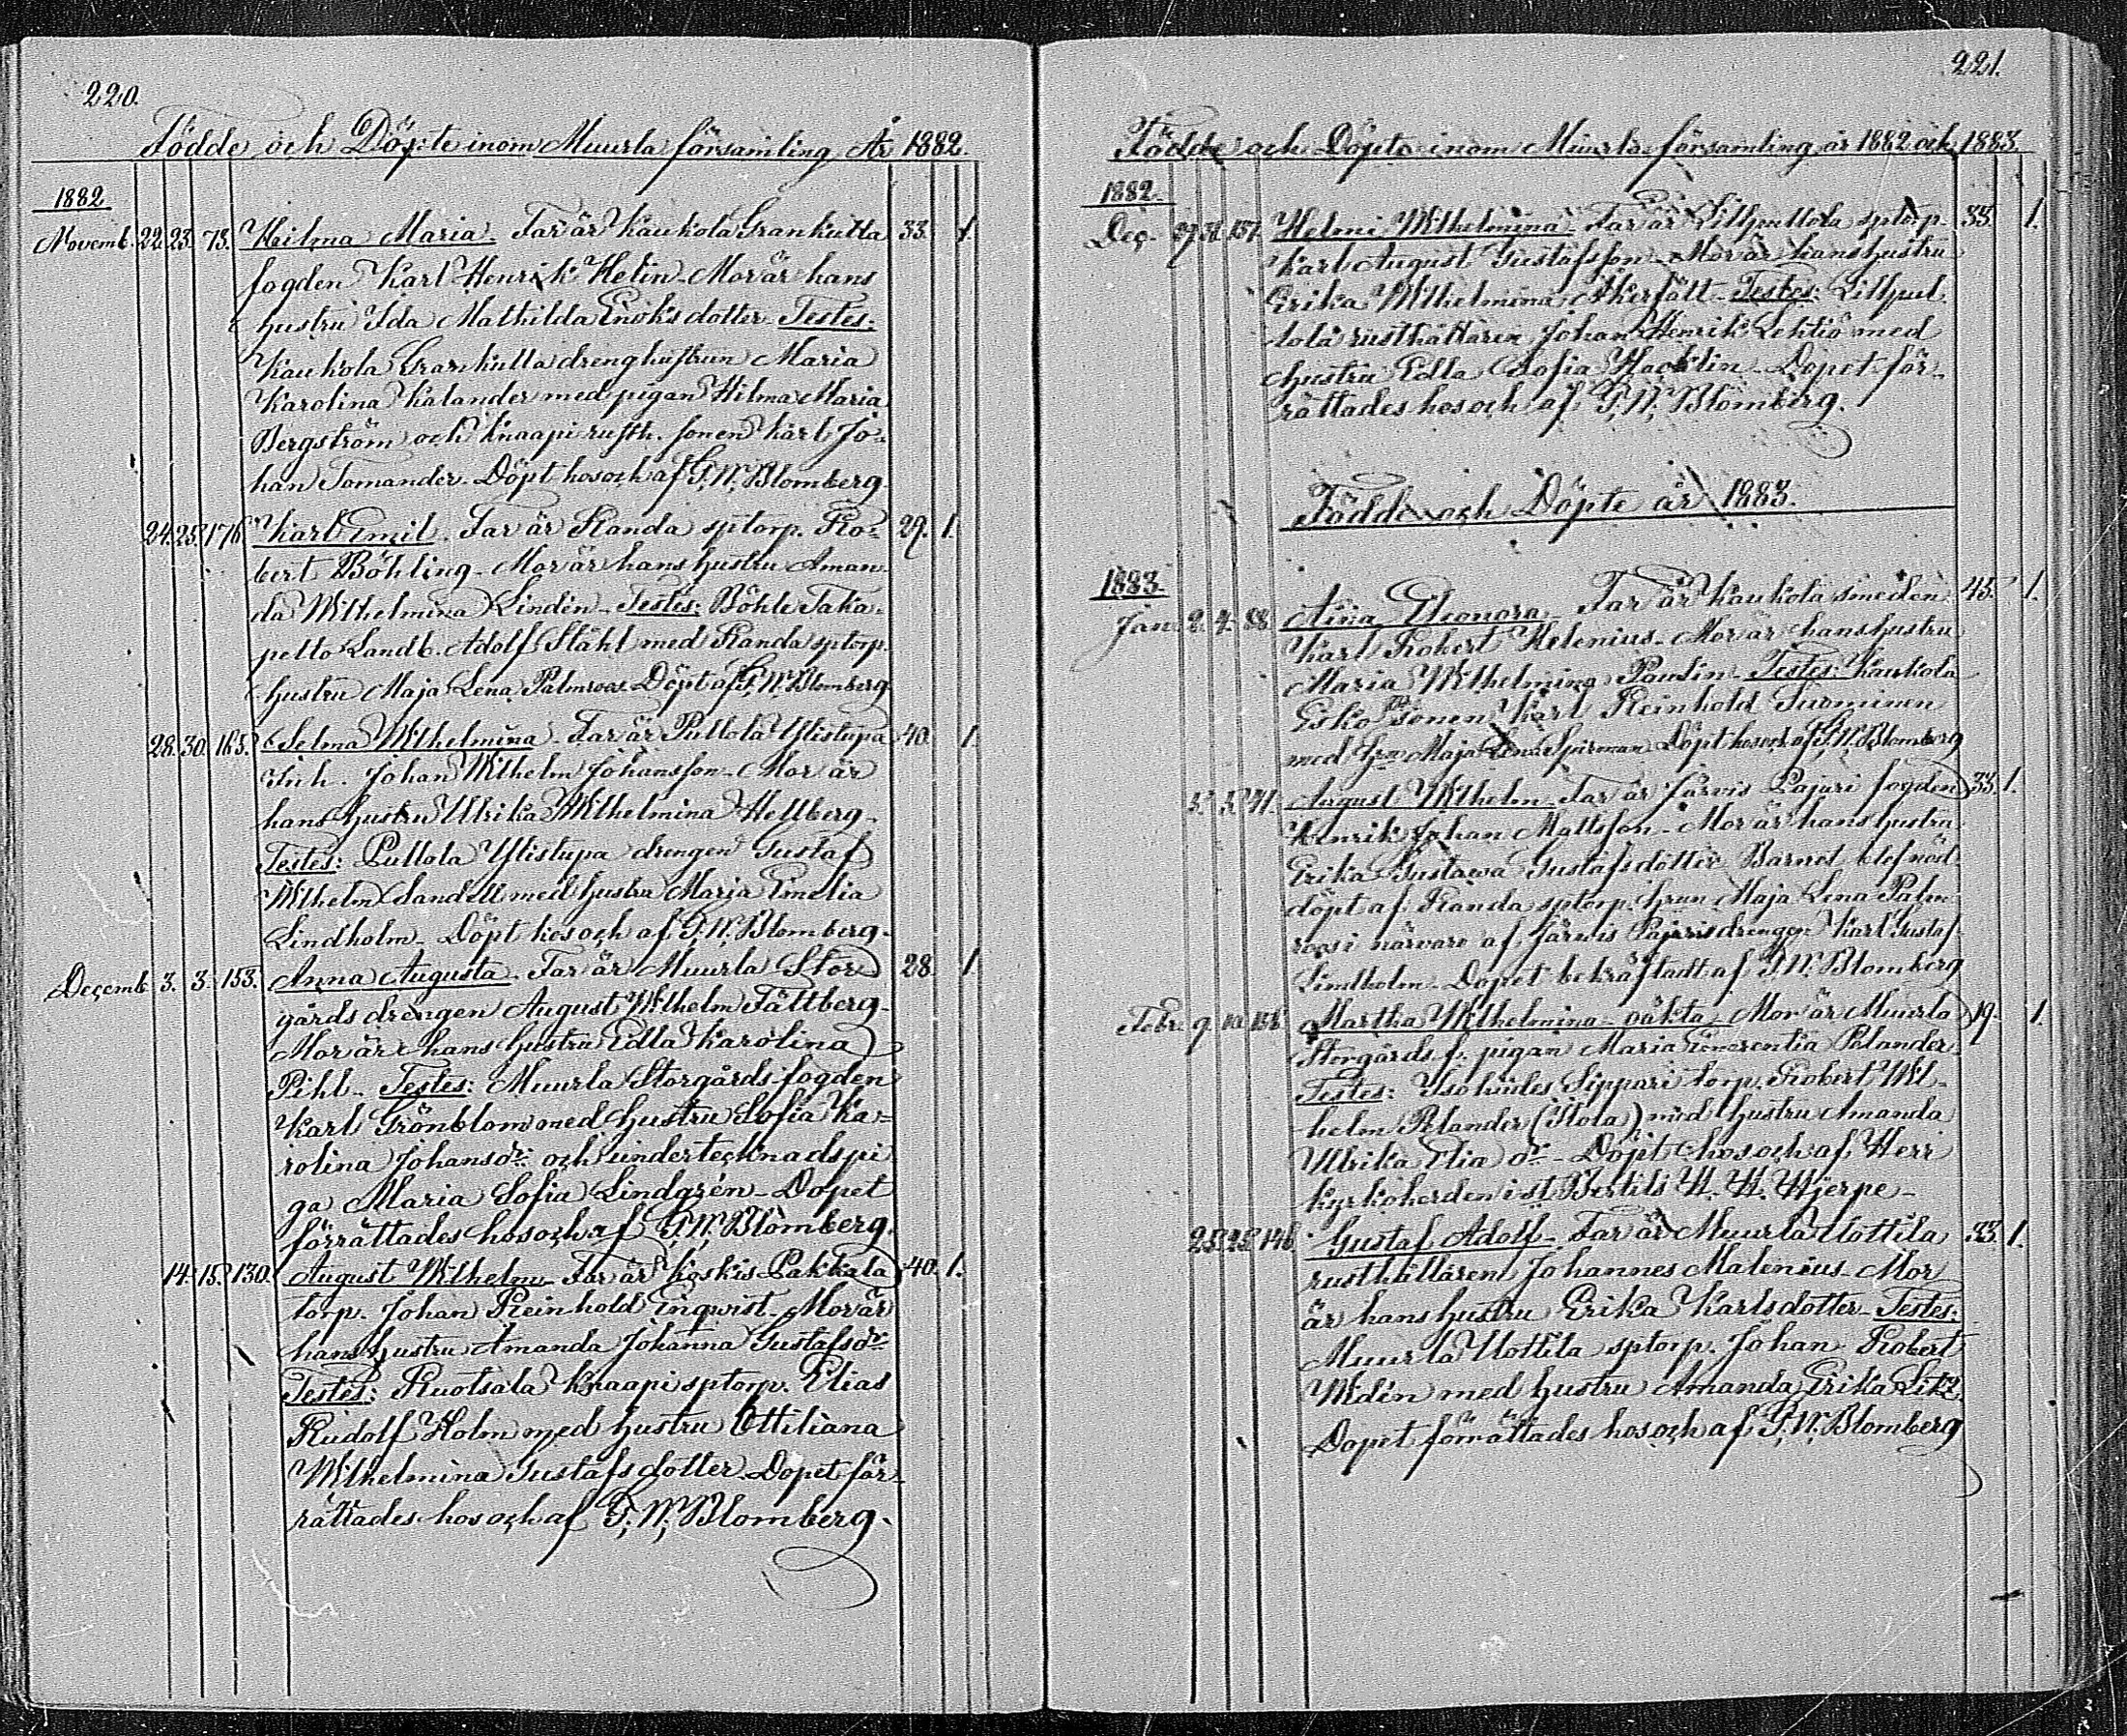 220.
Födde och Döpte inom Muurla församling År 1882.
1882
Novemb. 22. 23. 73. Hilma Maria. Far är Kaukola Grankulla 33. 1.
fogden Karl Henrik Helin. Mor är hans
hustru Ida Mathilda Enoksdotter. Testes:
Kaukola Grankulla drenghustrun Maria
Karolina Kalander med pigan Hilma Maria
Bergström och Knaapi rusth. sonen Karl Jo-
han Tomander. Döpt hos och af G. W. Blomberg.
24. 25. 176. Karl Emil. Far är Randa sptorp. Ro- 29. 1.
bert Böhling. Mor är hans hustru Aman-
da Wilhelmina Lindén. Testes: Böhle Taka-
pelto Landb. Adolf Ståhl med Randa sptorp.
hustru Maja Lena Palmroos. Döpt af G. W. Blomberg
28. 30. 165. Selma Wilhelmina. Far är Pullola Ylistupa 40. 1.
inh. Johan Wilhelm Johansson. Mor är
hans hustru Ulrika Wilhelmina Hellberg.
Testes: Pullola Ylistupa drengen Gustaf
Wilhelm Sandell med hustru Maria Emelia
Lindholm. Döpt hos och af G. W. Blomberg.
Decemb. 3. 3. 153. Anna Augusta. Far är Muurla Stor- 28. 1
gårds drengen August Wilhelm Fältberg.
Mor är hans hustru Edla Karolina
Pihl. Testes: Muurla Storgårds fogden
Karl Grönblom med hustru Sofia Ka-
rolina Johansdr. och undertecknads pi
ga Maria Sofia Lindgrén. Dopet
förrättades hos och af G. W. Blomberg.
14. 15. 130. August Wilhelm. Far är Koskis Pakkala 40. 1.
torp. Johan Reinhold Enqwist. Mor är
hans hustru Amanda Johanna Gustafsdr.
Testes: Ruotsala Knaapi sptorp. Elias
Rudolf Holm med hustru Ottiliana
Wilhelmina Gustafsdotter. Dopet för-
rättades hos och af G. W. Blomberg.
221.
Födde och Döpte inom Muurla församling år 1882 och 1883.
1882.
Dec. 31. 157. Helmi Wilhelmina. Far är Lillpullola sptorp. 33. 1.
Karl August Gustafsson. Mor är hans hustru
Erika Wilhelmina Åkerfält. Testes: Lillpul-
lola rusthållaren Johan Henrik Lehtiö med
hustru Edla Sofia Hacklin. Dopet för-
rättades hos och af G. W. Blomberg.
Födde och Döpte år 1883.
1883.
Jan. 2. 4. 88. Aina Eleonora. Far är Kaukola smeden 45. 1.
Karl Robert Helenius. Mor är hans hustru
Maria Wilhelmina Paulin. Testes: Kaukola
Esko sonen Karl Reinhold Tuominen
med Maja Lena Spirman. Döpt hos och af G. W. Blomberg
5. 5. 71. August Wilhelm. Far är Järvis Pajari fogden 33. 1.
Henrik Johan Mattsson. Mor är hans hustru
Erika Gustava Gustafsdotter. Barnet blef nöd-
döpt af Randa sptorp. hrun Maja Lena Palm-
roos i närvaro af Järvis Pajaris drengen Karl Gustaf
Lindholm. Dopet bekräftadt af G. W. Blomberg
Febr. 9. 10. 156. Martha Wilhelmina - oäkta. Mor är Muurla 19. 1.
Storgårds f. pigan Maria Polander.
Testes: Isokiiles Sippari torp. Robert Wil-
helm Polander (Stola) med hustru Amanda
Ulrika Elia dr. Döpt hos och af Herr
kyrkoherden i St. Bertils H. H. Hjerpe.
25. 25. 146. Gustaf Adolf. Far är Muurla Uottila 33. 1.
rusthållaren Johannes Malenius. Mor
är hans hustru Erika Karlsdotter. Testes:
Muurla Uottila sptorp. Johan Robert
Widén med hustru Amanda Erika
Dopet förrättades hos och af G. W. Blomberg